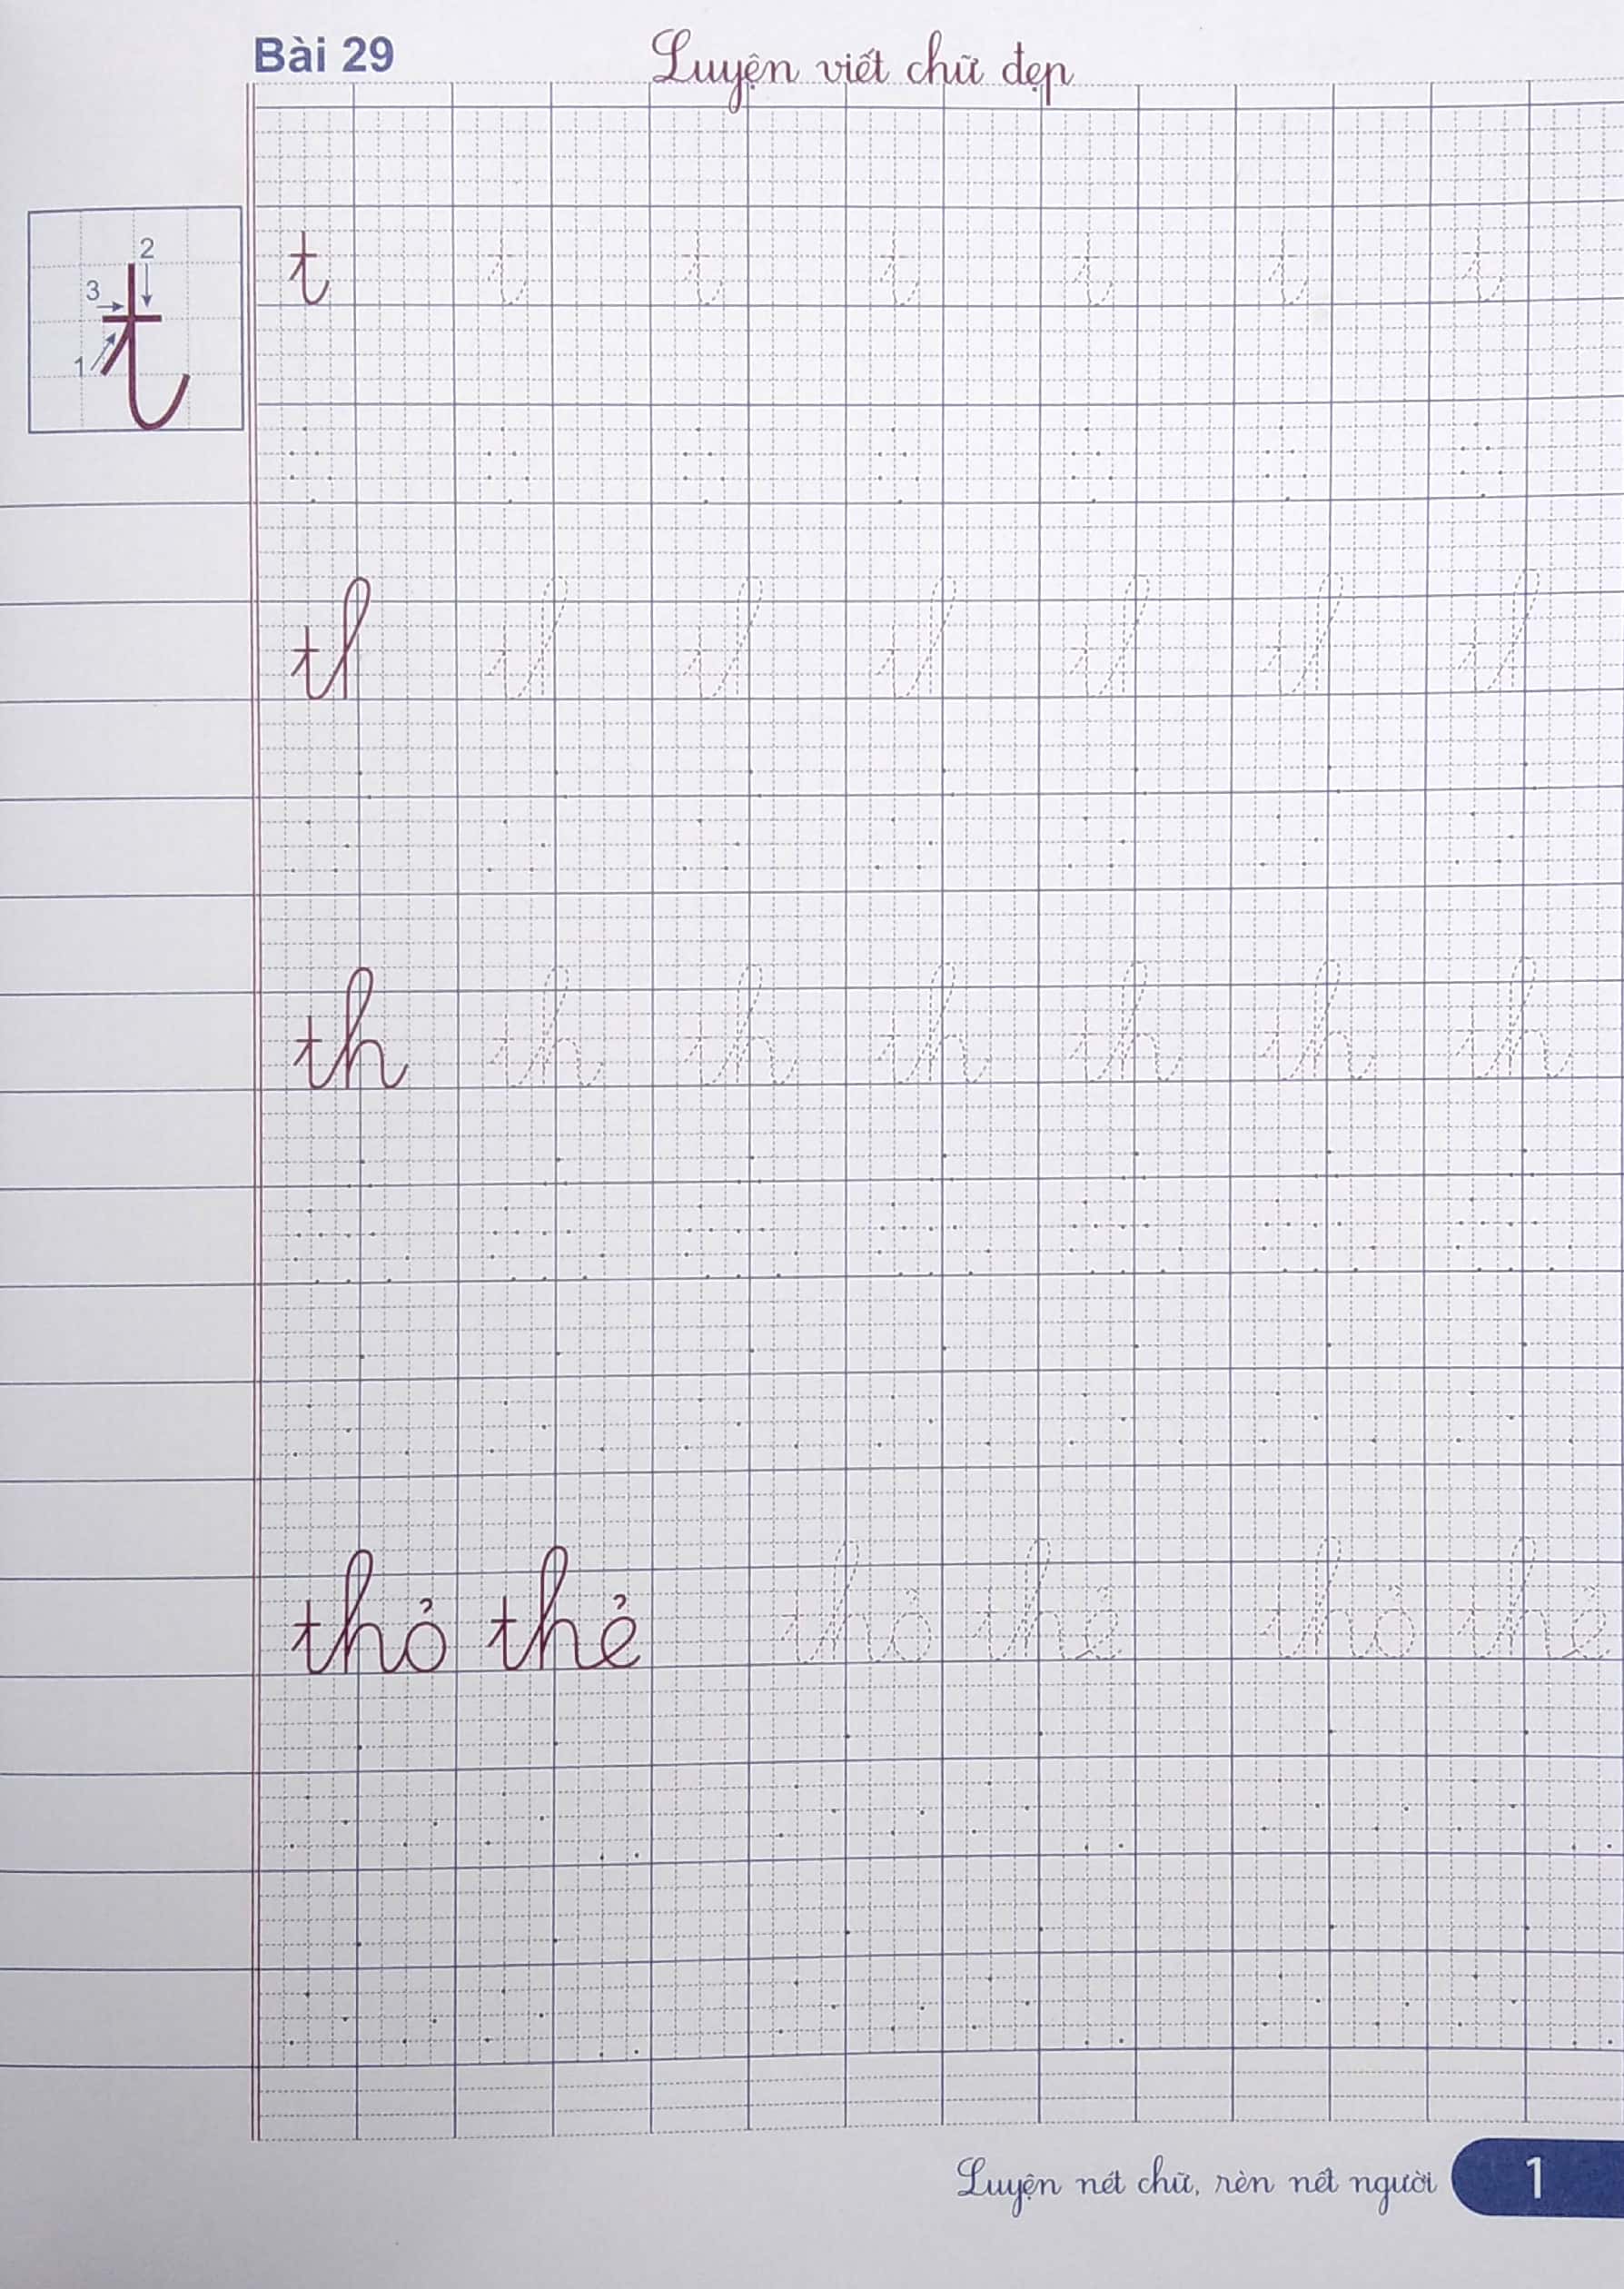 Bài 29 Luyện viết chữ đẹp
2
3
1
t t t t t t t
tl tl tl tl tl tl tl
th th th th th th th
thỏ thẻ thỏ thẻ thỏ thẻ
Luyện nét chữ, rèn nết người 1